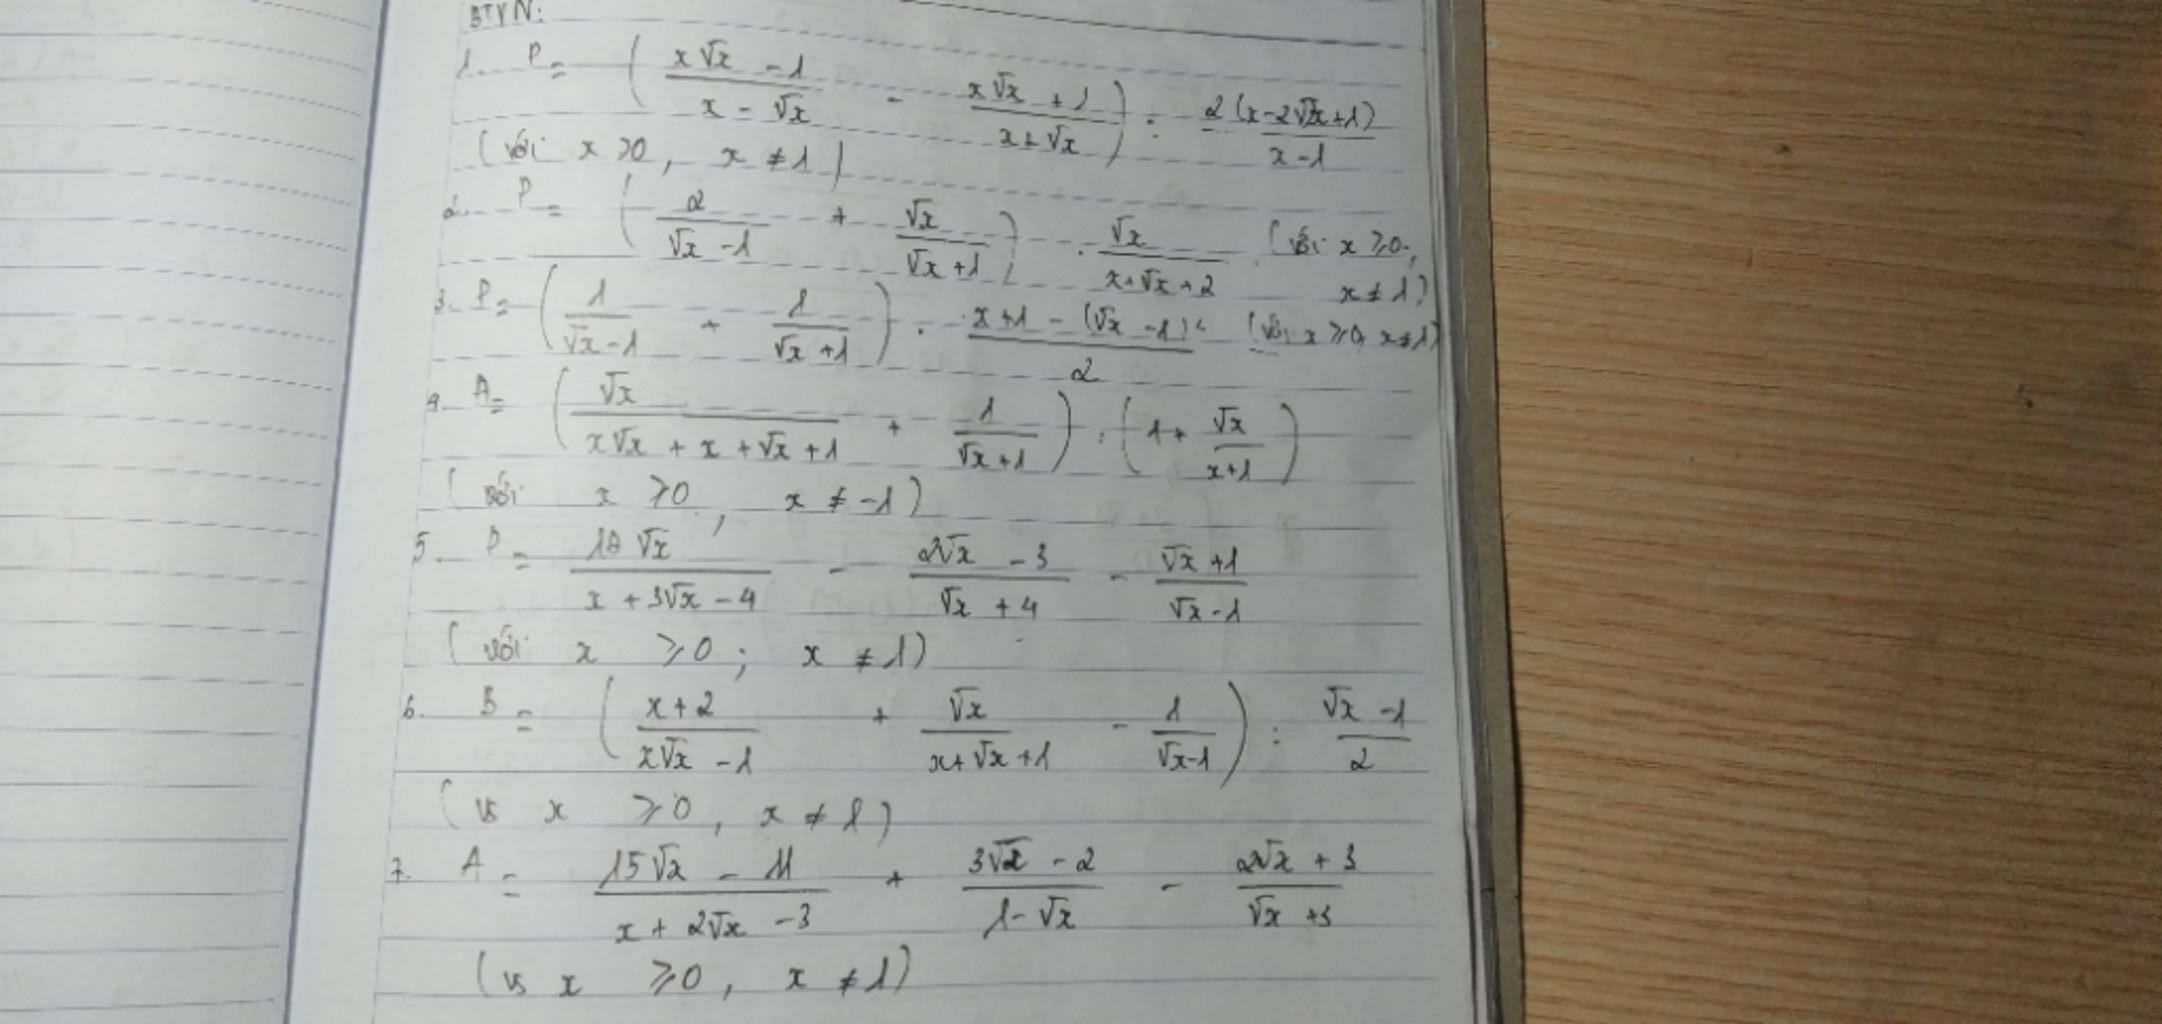 BTVN:
1. P = ( (x√x - 1)/(x - √x) - (x√x + 1)/(x + √x) ) : 2(x - 2√x + 1)/(x - 1)
(với x > 0, x ≠ 1)
2. P = ( 2/(√x - 1) + √x/(√x + 1) ) . √x/(x + √x + 2) (với x ≥ 0, x ≠ 1)
3. P = ( 1/(√x - 1) + 1/(√x + 1) ) . (x + 1 - (√x - 1)²)/2 (với x ≥ 0, x ≠ 1)
4. A = ( √x/(x√x + x + √x + 1) + 1/(√x + 1) ) : ( 1 + √x/(x + 1) )
(với x ≥ 0, x ≠ -1)
5. P = 10√x/(x + 3√x - 4) - (2√x - 3)/(√x + 4) - (√x + 1)/(√x - 1)
(với x ≥ 0; x ≠ 1)
6. B = ( (x + 2)/(x√x - 1) + √x/(x + √x + 1) - 1/(√x - 1) ) : (√x - 1)/2
(vs x ≥ 0, x ≠ 1)
7. A = (15√x - 11)/(x + 2√x - 3) + (3√x - 2)/(1 - √x) - (2√x + 3)/(√x + 3)
(vs x ≥ 0, x ≠ 1)